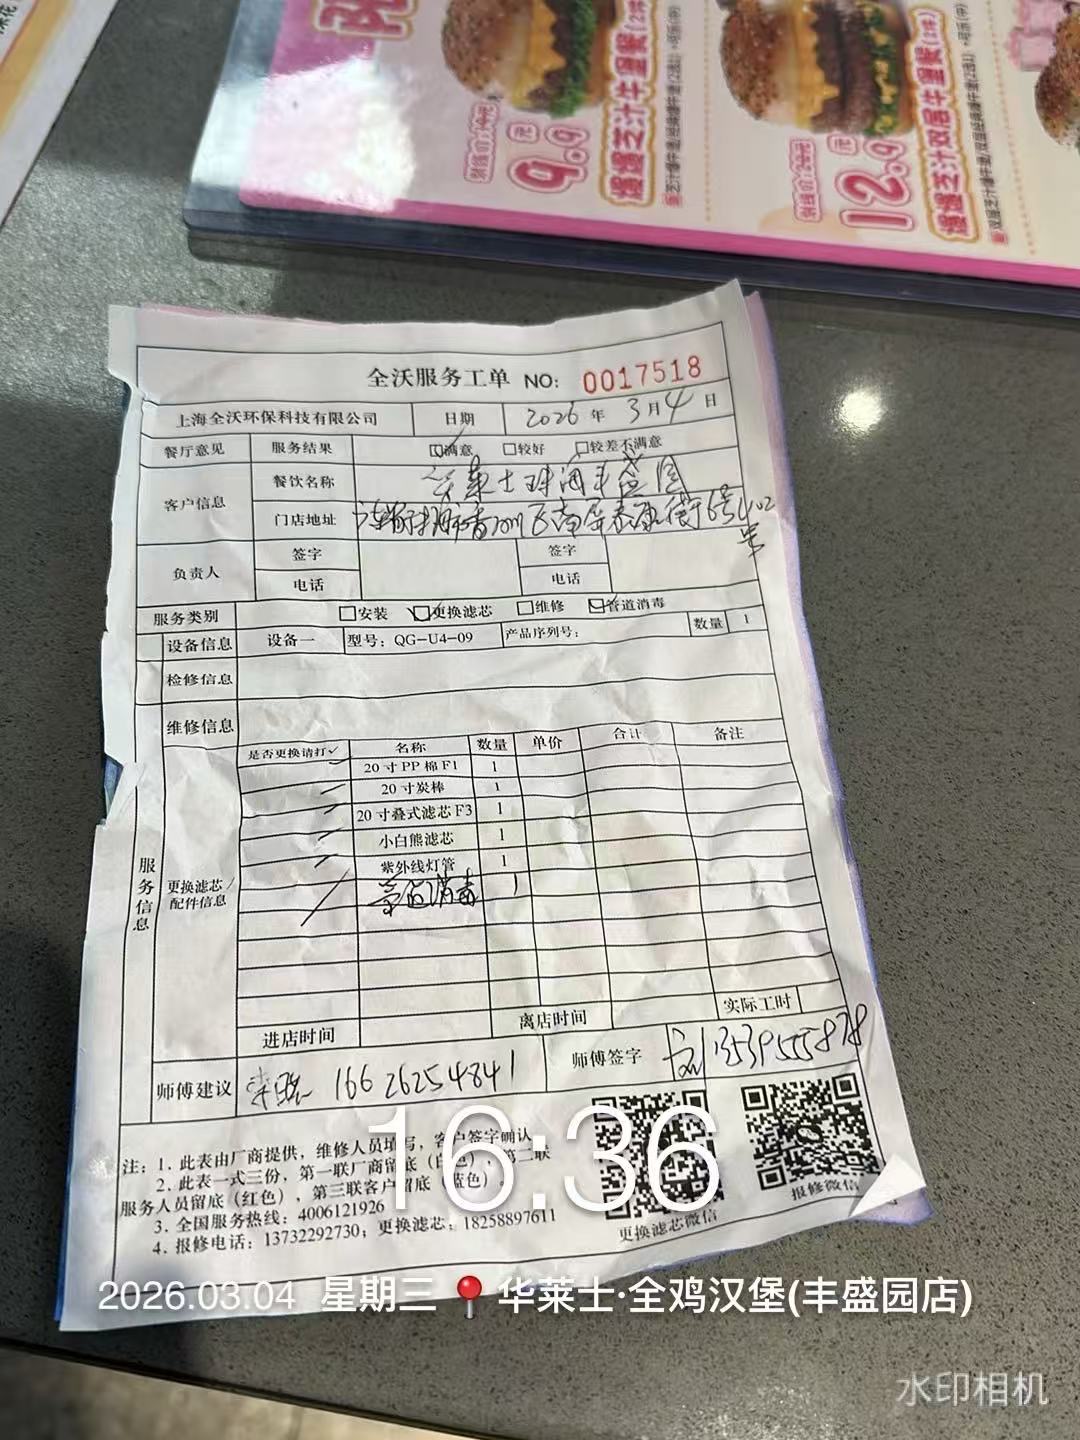 9.9元
嫚嫚芝汁牛堡餐(2件)
12.9元
嫚嫚芝汁双层牛堡餐(2件)
全沃服务工单 NO: 0017518
上海全沃环保科技有限公司 日期 2026 年 3 月 4 日
餐厅意见 服务结果 ☑满意 □较好 □较差不满意
客户信息 餐饮名称 华莱士珠海丰盛园
门店地址 南屏 街6号
负责人 签字 签字
电话 电话
服务类别 □安装 ☑更换滤芯 □维修 ☑管道消毒
设备信息 设备一 型号: QG-U4-09 产品序列号: 数量 1
检修信息
维修信息
服务信息
更换滤芯/配件信息
是否更换请打✓ 名称 数量 单价 合计 备注
✓ 20寸PP棉F1 1
✓ 20寸炭棒 1
✓ 20寸叠式滤芯F3 1
✓ 小白熊滤芯 1
✓ 紫外线灯管 1
✓ 管道消毒 1
进店时间 离店时间 实际工时
师傅建议 16626254841 师傅签字 13539555878
注: 1. 此表由厂商提供，维修人员填写，客户签字确认
2. 此表一式三份，第一联厂商留底（白色），第二联
服务人员留底（红色），第三联客户留底（蓝色）。
3. 全国服务热线: 4006121926
4. 报修电话: 13732292730; 更换滤芯: 18258897611
更换滤芯微信
报修微信
16:36
2026.03.04 星期三 华莱士·全鸡汉堡(丰盛园店)
水印相机